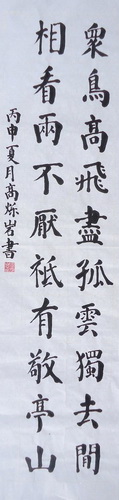 衆鳥高飛盡孤雲獨去閒
相看兩不厭祗有敬亭山
丙申夏月高烁岩書